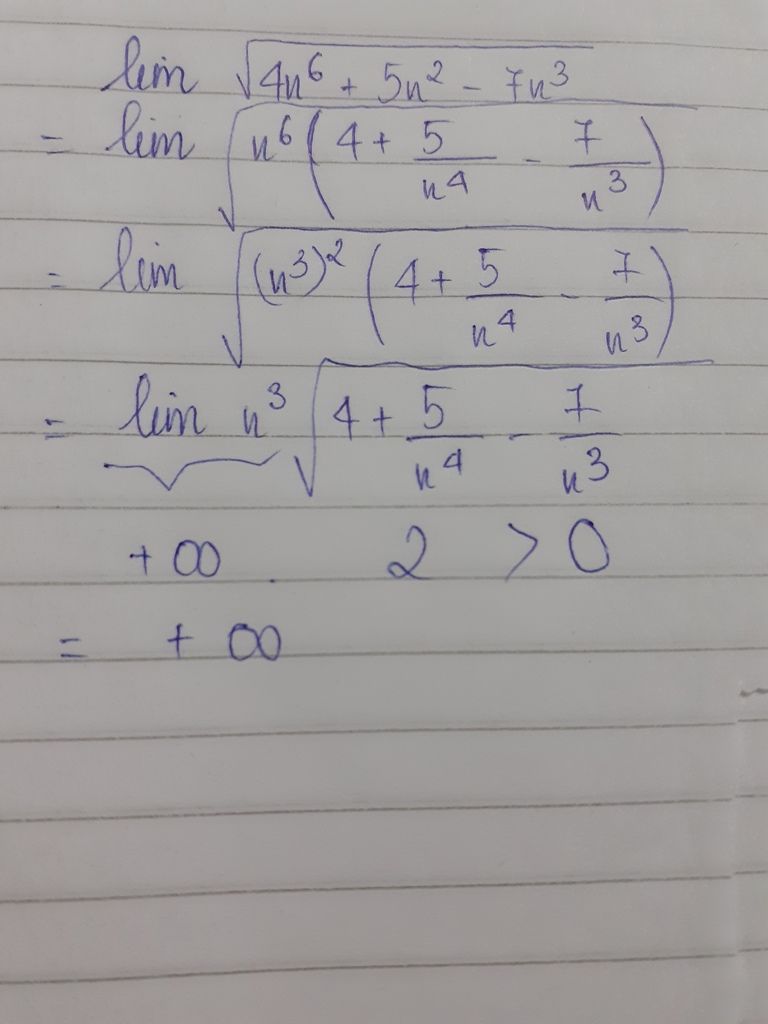 lim √(4n⁶ + 5n² - 7n³)
= lim √(n⁶(4 + 5/n⁴ - 7/n³))
= lim √((n³)²(4 + 5/n⁴ - 7/n³))
= lim n³ √(4 + 5/n⁴ - 7/n³)
+∞ . 2 > 0
= +∞